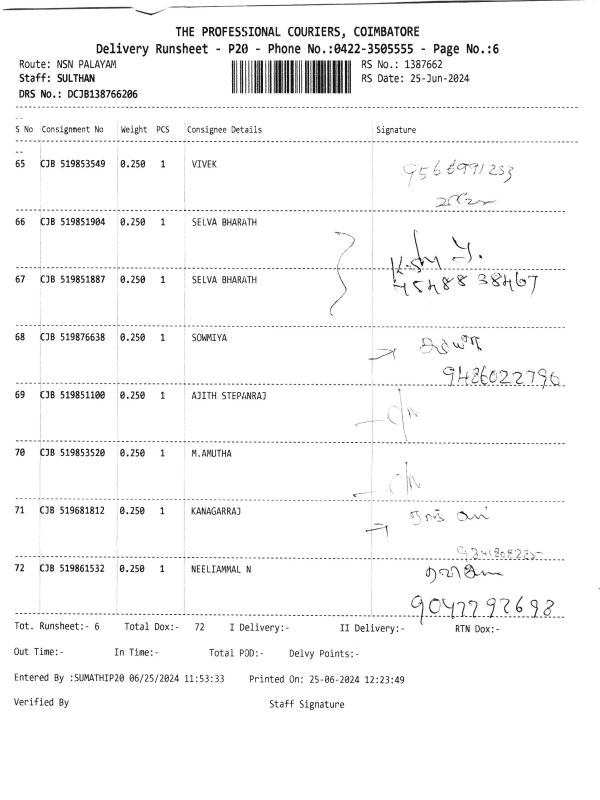 THE PROFESSIONAL COURIERS, COIMBATORE
Delivery Runsheet - P20 - Phone No.:0422-3505555 - Page No.:6
Route: NSN PALAYAM RS No.: 1387662
Staff: SULTHAN RS Date: 25-Jun-2024
DRS No.: DCJB138766206
S No Consignment No Weight PCS Consignee Details Signature
65 CJB 519853549 0.250 1 VIVEK
66 CJB 519851904 0.250 1 SELVA BHARATH
67 CJB 519851887 0.250 1 SELVA BHARATH
68 CJB 519876638 0.250 1 SOWMIYA
9486022796
69 CJB 519851100 0.250 1 AJITH STEPANRAJ
70 CJB 519853520 0.250 1 M.AMUTHA
71 CJB 519681812 0.250 1 KANAGARRAJ
72 CJB 519861532 0.250 1 NEELIAMMAL N
Tot. Runsheet:- 6 Total Dox:- 72 I Delivery:- II Delivery:- RTN Dox:-
Out Time:- In Time:- Total POD:- Delvy Points:-
Entered By :SUMATHIP20 06/25/2024 11:53:33 Printed On: 25-06-2024 12:23:49
Verified By Staff Signature